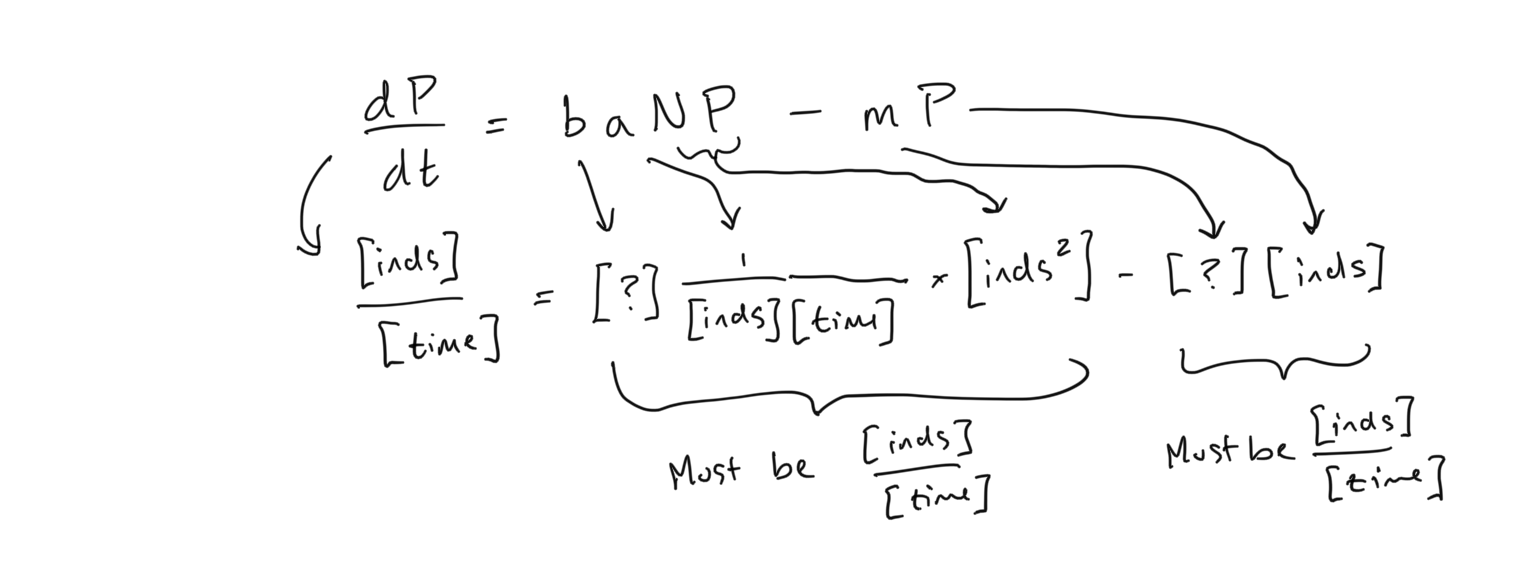 dP/dt = baNP - mP
[inds]/[time] = [?] 1/[inds][time] × [inds²] - [?][inds]
Must be [inds]/[time]
Must be [inds]/[time]